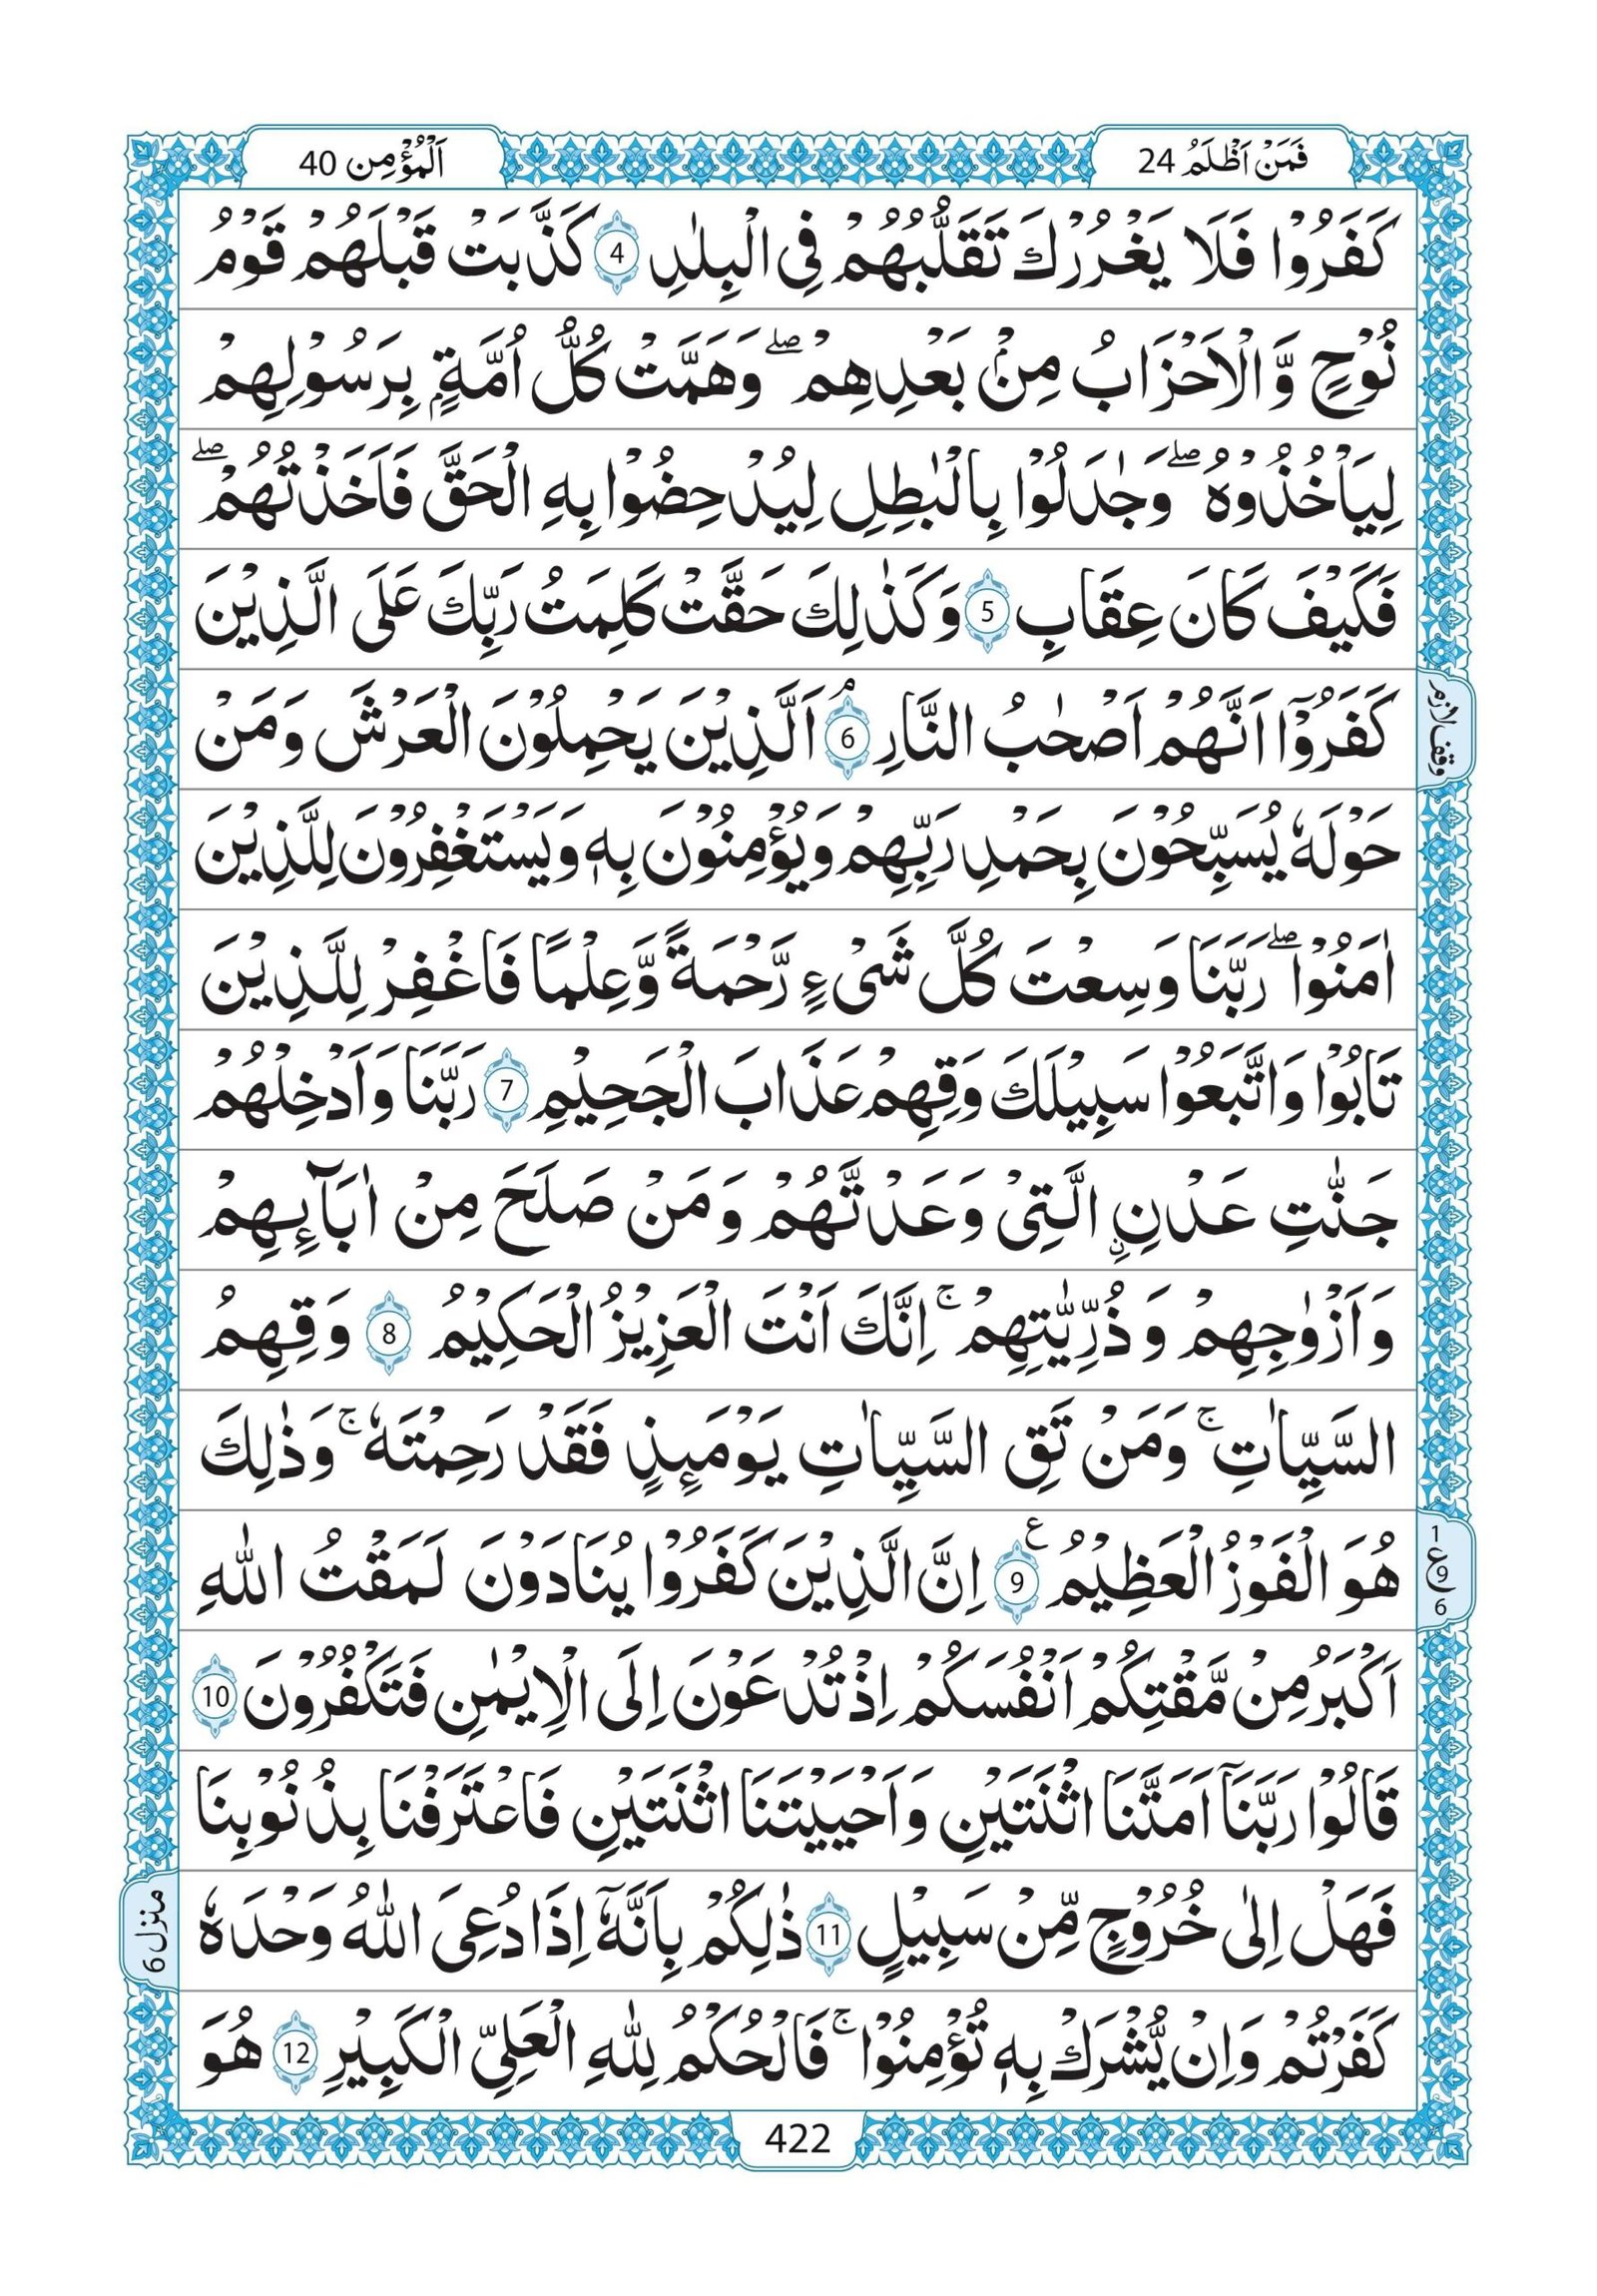 فَمَنْ اَظْلَمُ 24
اَلْمُؤْمِن 40
كَفَرُوْا فَلَا يَغْرُرْكَ تَقَلُّبُهُمْ فِي الْبِلٰدِ 4 كَذَّبَتْ قَبْلَهُمْ قَوْمُ
نُوْحٍ وَّ الْاَحْزَابُ مِنْۢ بَعْدِهِمْ ۖ وَهَمَّتْ كُلُّ اُمَّةٍۭ بِرَسُوْلِهِمْ
لِيَاْخُذُوْهُ ۖ وَجٰدَلُوْا بِالْبٰطِلِ لِيُدْحِضُوْا بِهِ الْحَقَّ فَاَخَذْتُهُمْ ۖ
فَكَيْفَ كَانَ عِقَابِ 5 وَكَذٰلِكَ حَقَّتْ كَلِمَتُ رَبِّكَ عَلَى الَّذِيْنَ
كَفَرُوْٓا اَنَّهُمْ اَصْحٰبُ النَّارِ 6 ۘ اَلَّذِيْنَ يَحْمِلُوْنَ الْعَرْشَ وَمَنْ
وقف لازم
حَوْلَهٗ يُسَبِّحُوْنَ بِحَمْدِ رَبِّهِمْ وَيُؤْمِنُوْنَ بِهٖ وَيَسْتَغْفِرُوْنَ لِلَّذِيْنَ
اٰمَنُوْا ۖ رَبَّنَا وَسِعْتَ كُلَّ شَيْءٍ رَّحْمَةً وَّعِلْمًا فَاغْفِرْ لِلَّذِيْنَ
تَابُوْا وَاتَّبَعُوْا سَبِيْلَكَ وَقِهِمْ عَذَابَ الْجَحِيْمِ 7 رَبَّنَا وَاَدْخِلْهُمْ
جَنّٰتِ عَدْنِ ۨالَّتِيْ وَعَدْتَّهُمْ وَمَنْ صَلَحَ مِنْ اٰبَآئِهِمْ
وَاَزْوٰجِهِمْ وَذُرِّيّٰتِهِمْ ۚ اِنَّكَ اَنْتَ الْعَزِيْزُ الْحَكِيْمُ 8 وَقِهِمُ
السَّيِّاٰتِ ۚ وَمَنْ تَقِ السَّيِّاٰتِ يَوْمَئِذٍ فَقَدْ رَحِمْتَهٗ ۚ وَذٰلِكَ
هُوَ الْفَوْزُ الْعَظِيْمُ 9 ع اِنَّ الَّذِيْنَ كَفَرُوْا يُنَادَوْنَ لَمَقْتُ اللّٰهِ
1
ع 9
6
اَكْبَرُ مِنْ مَّقْتِكُمْ اَنْفُسَكُمْ اِذْ تُدْعَوْنَ اِلَى الْاِيْمٰنِ فَتَكْفُرُوْنَ 10
قَالُوْا رَبَّنَآ اَمَتَّنَا اثْنَتَيْنِ وَاَحْيَيْتَنَا اثْنَتَيْنِ فَاعْتَرَفْنَا بِذُنُوْبِنَا
فَهَلْ اِلٰى خُرُوْجٍ مِّنْ سَبِيْلٍ 11 ذٰلِكُمْ بِاَنَّهٗٓ اِذَا دُعِيَ اللّٰهُ وَحْدَهٗ
منزل 6
كَفَرْتُمْ وَاِنْ يُّشْرَكْ بِهٖ تُؤْمِنُوْا ۚ فَالْحُكْمُ لِلّٰهِ الْعَلِيِّ الْكَبِيْرِ 12 هُوَ
422